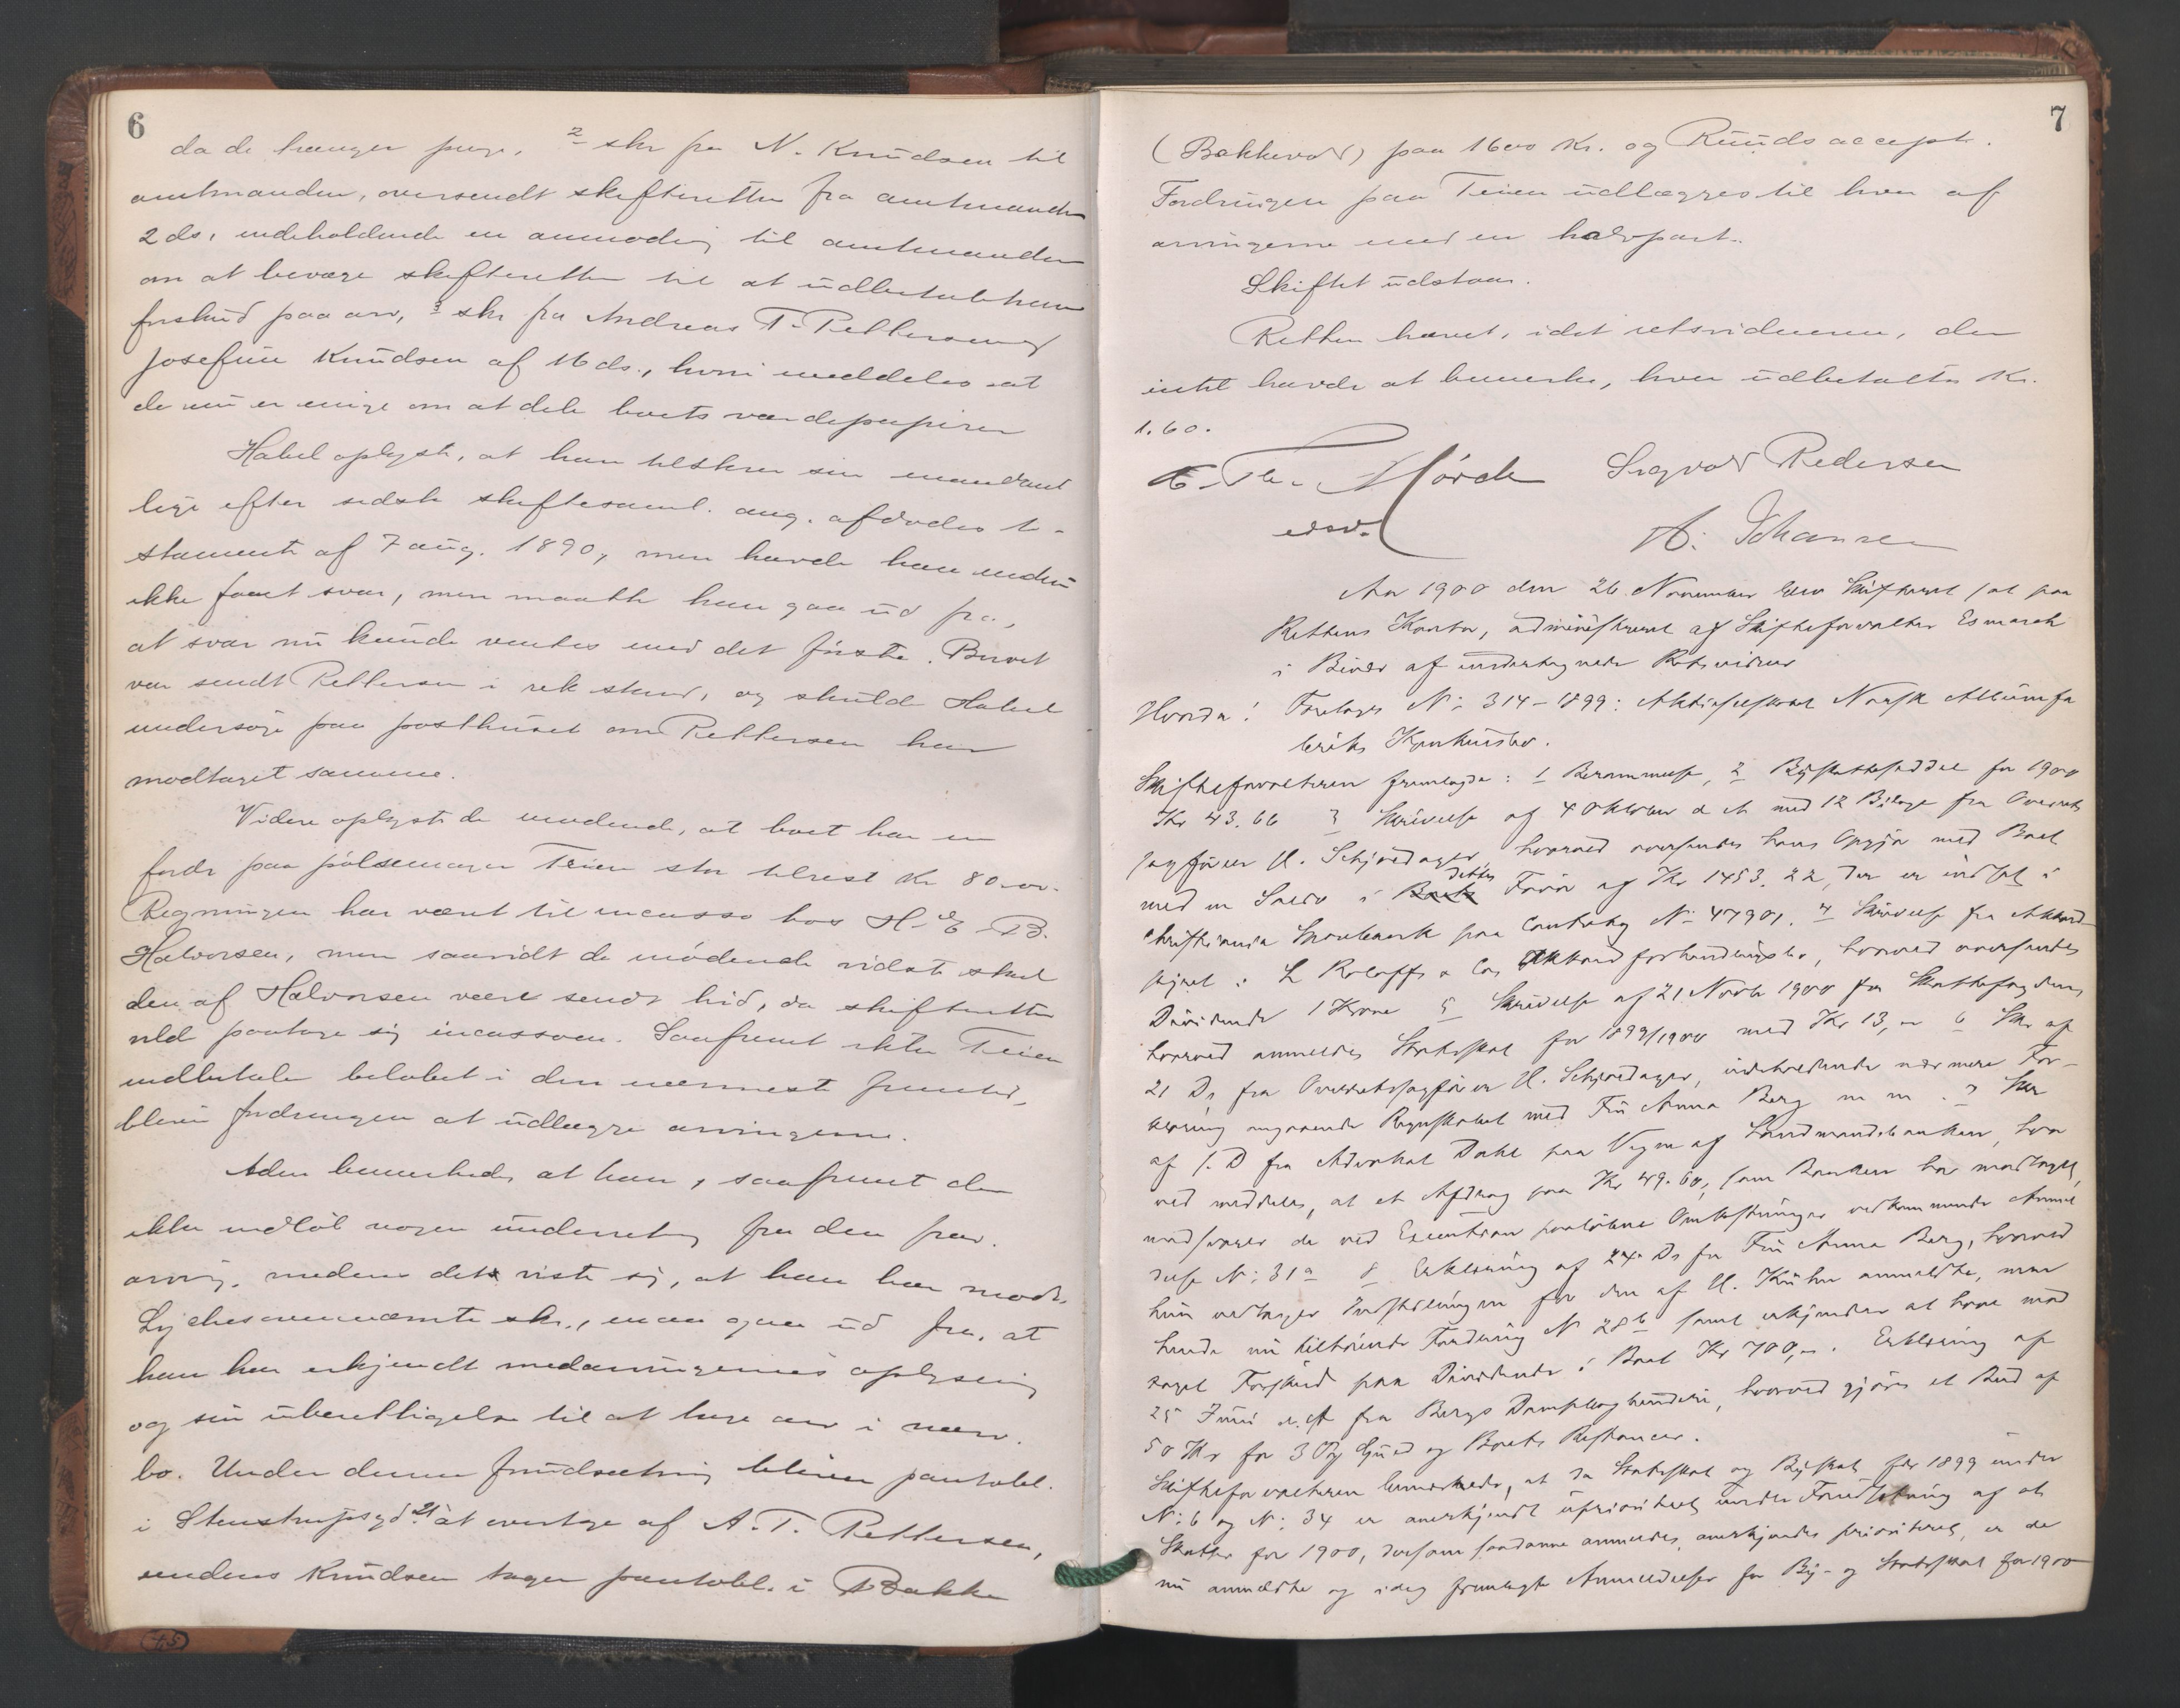 6
da de trænger penge, 2 skr fra N. Knudsen til
amtmanden, oversendt skifteretten fra amtmanden
2 ds, indeholdende en anmodng til amtmanden
om at bevæge skifteretten til at udbetale ham
forskud paa arv, 3 skr fra Andreas T. Pettersen og
Josefine Knudsen af 16 ds., hvori meddeles at
de nu er enige om at dele boets værdipapirer
Habel oplyste, at han tilskrev sin mandant
lige efter sidste skiftesaml. ang. afdødes te-
stamente af 7 aug. 1890, men havde han endnu
ikke faaet svar, men maatte han gaa ud fra,
at svar nu kunde ventes med det første. Brevet
var sendt Pettersen i rek stand, og skulde Habel
undersøge paa posthuset om Pettersen har
modtaget samme.
Videre oplyste de mødende, at boet har en
fordr paa pølsemager Teien stor tilrest Kr 80.00.
Regningen har været til incasso hos H. E. B.
Halvorsen, men saavidt de mødende vidste skal
den af Halvorsen være sendt hid, da skifteretten
vild paatage sig incassoen. Saafremt ikke Teien
indbetaler beløbet i den nærmeste fremtid,
bliver fordringen at udlægge arvingerne.
Aden bemærkede, at han, saafremt der
ikke indløb nogen underretng fra den frav.
arving, medens det viste sig, at han har modt.
Lyches ovennævnte skr., maa gaa ud fra, at
han har erkjendt medarvingernes oplysning
og sin uberettigelse til at tage arv i nærv.
bo. Under denne forudsætning bliver pantobl.
i Stenstrupsgd 21 at overtage af A. T. Pettersen,
medens Knudsen tager pantobl. i Bakke
7
(Bakkevold) paa 1600 Kr. og Ruuds accept.
Fordringen paa Teien udlægges til hver af
arvingerne med en halvpart.
Skiftet udstaar.
Retten hævet, idet retsvidnerne, der
intet havde at bemerke, hver udbetaltes Kr.
1.60.
Th. Mörch Sigvald Pedersen
edsv. A. Johansen
Aar 1900 den 26. November blev Skifteret sat paa
Rettens Kontor, administreret af Skifteforvalter Esmarch
i Bivær af undertegnede Retsvidner
Hvorda: Foretoges No 314-1899: Aktieselskabet Norsk Albumfa
briks Konkursbo.
Skifteforvalteren fremlagde: 1 Berammelse, 2 Byskatteseddel for 1900
Kr 43.66 3 Skrivelse af 4 Oktober d A med 12 Bilage fra Overrets
sagfører H. Schjoldager, hvorved oversendes hans Opgjør med Boet
med en Saldo i dettes Favør af Kr 1453.22, der er indsat i
Christiania Sparebank paa Contrabog No 47901. 4 Skrivelse fra Akkord
styret i L Roloffs & Co Akkordforhandlingsbo, hvorved oversendes
Dividende 1 Krone 5 Skrivelse af 21 Novbr 1900 fra Skattefogden,
hvorved anmeldes Statsskat for 1899/1900 med Kr 13,- 6 Skr af
21 Ds fra Overretssagfører H. Schjoldager, indeholdende nærmere For-
klaring angaaende Regnskabet med Fru Anna Berg m m. 7 Skr
af s. D fra Advokat Dahl paa Vegne af Landmandsbanken, hvor
ved meddeles, at et Afdrag paa Kr 49.60, som Banken har modtaget,
modsvarer de ved Execution paaløbne Omkostninger vedkommende Anmel
delse No 31a 8 Erklæring af 24 Ds fra Fru Anna Berg, hvorved
hun vedtager Indstillingen for den af H. Kühn anmeldte, men
hende nu tilhørende Fordring No 28b samt erkjender at have mod
taget Forskud paa Dividende i Boet Kr 700,-. Erklæring af
25 Juni d. A fra Bergs Dampbogbinderi, hvorved gjøres et Bud af
50 Kr for 3 Gud og Boets Restancer.
Skifteforvalteren bemærkede, at da Statsskat og Byskat for 1899 under
No 6 og No 34 er anerkjendt uprioriteret under Forudsætning af at
Skatter for 1900, dersom saadanne anmeldes, anerkjendes prioriteret, er de
nu anmeldte og idag fremlagte Anmeldelser for By- og Statsskat for 1900